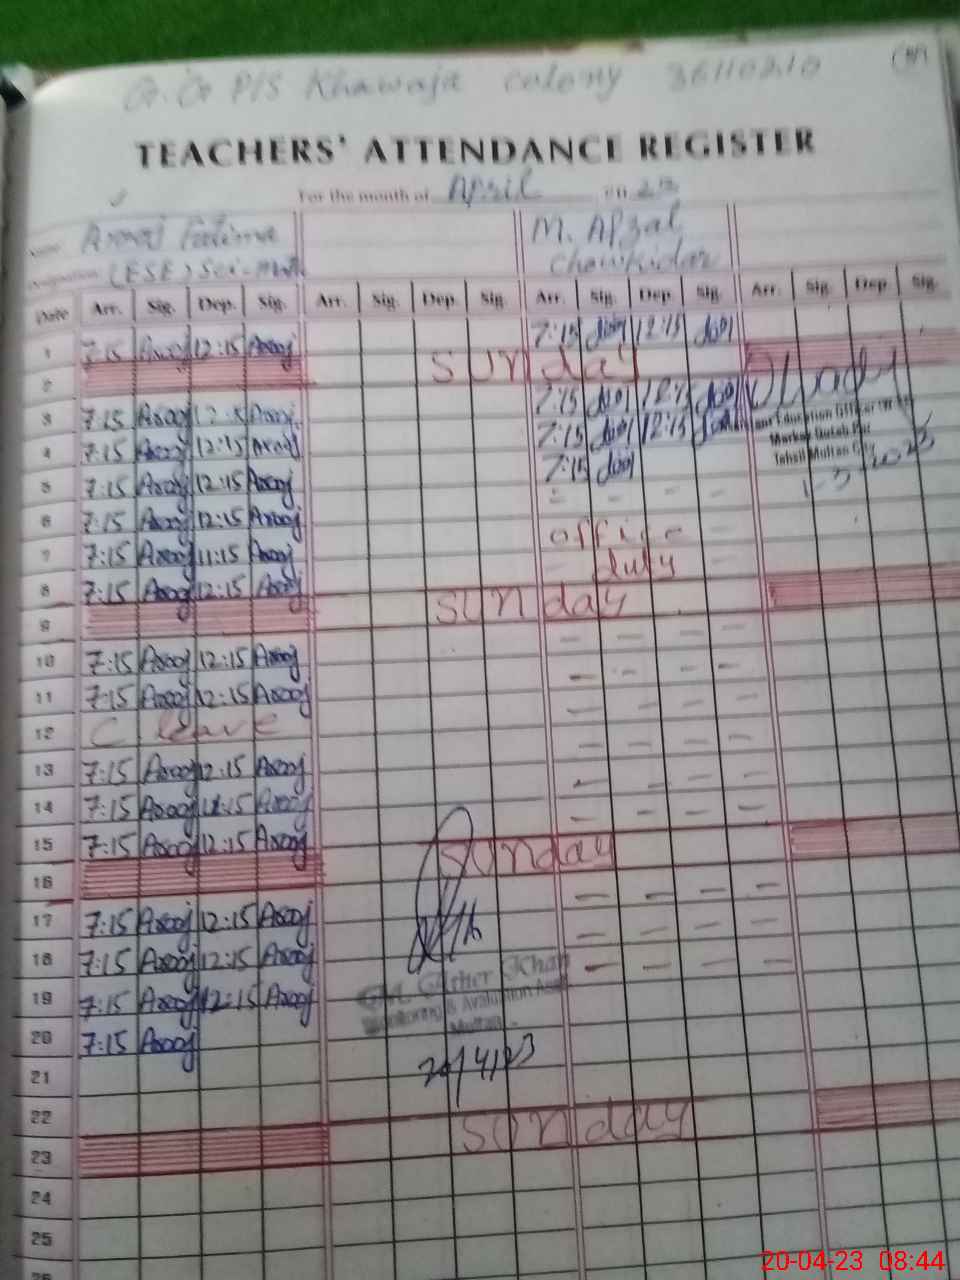 G.G P/S Khawaja colony 36110210
TEACHERS' ATTENDANCE REGISTER
For the month of April
Arooj Fatima M. Afzal
(ESE) Sci-Math Chowkidar
Date Arr. Sig. Dep. Sig. Arr. Sig. Dep. Sig. Arr. Sig. Dep. Sig. Arr. Sig. Dep. Sig.
1 7:15 Arooj 12:15 Arooj 7:15 12:15
2 Sunday
3 7:15 Arooj Arooj 7:15 12:15
4 7:15 Arooj 12:15 Arooj 7:15 12:15
5 7:15 Arooj 12:15 Arooj 7:15
6 7:15 Arooj 12:15 Arooj - - - -
7 7:15 Arooj 11:15 Arooj office
8 7:15 Arooj 12:15 Arooj duty
9 Sunday
10 7:15 Arooj 12:15 Arooj - - - -
11 7:15 Arooj 12:15 Arooj - - - -
12 C leave - - - -
13 7:15 Arooj 12:15 Arooj - - - -
14 7:15 Arooj Arooj - - - -
15 7:15 Arooj 12:15 Arooj - - - -
16 Sunday
17 7:15 Arooj 12:15 Arooj - - - -
18 7:15 Arooj 12:15 Arooj - - - -
19 7:15 Arooj 12:15 Arooj - - - -
20 7:15 Arooj
21
22
23 Sunday
24
25
Education Officer
Markaz Qutab Pur
Tehsil Multan City
Khan
Monitoring & Evaluation
Multan
20/4/23
20-04-23 08:44